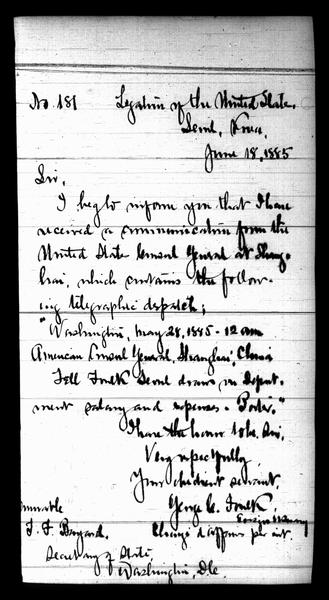 No. 181
Legation of the United States,
Seoul, Korea,
June 18, 1885
Sir,
I beg to inform you that I have
received a communication from the
United States Consul General at Shang-
hai, which contains the follow-
ing telegraphic dispatch;
"Washington, May 28, 1885 - 12 am
American Consul General, Shanghai, China
Tell Foulk Seoul draw on Depart-
ment salary and expenses - Porter."
I have the honor to be, Sir,
Very respectfully,
Your obedient servant,
George C. Foulk,
Ensign U.S. Navy
Chargé d'affaires
T. F. Bayard,
Secretary of State,
Washington, D.C.